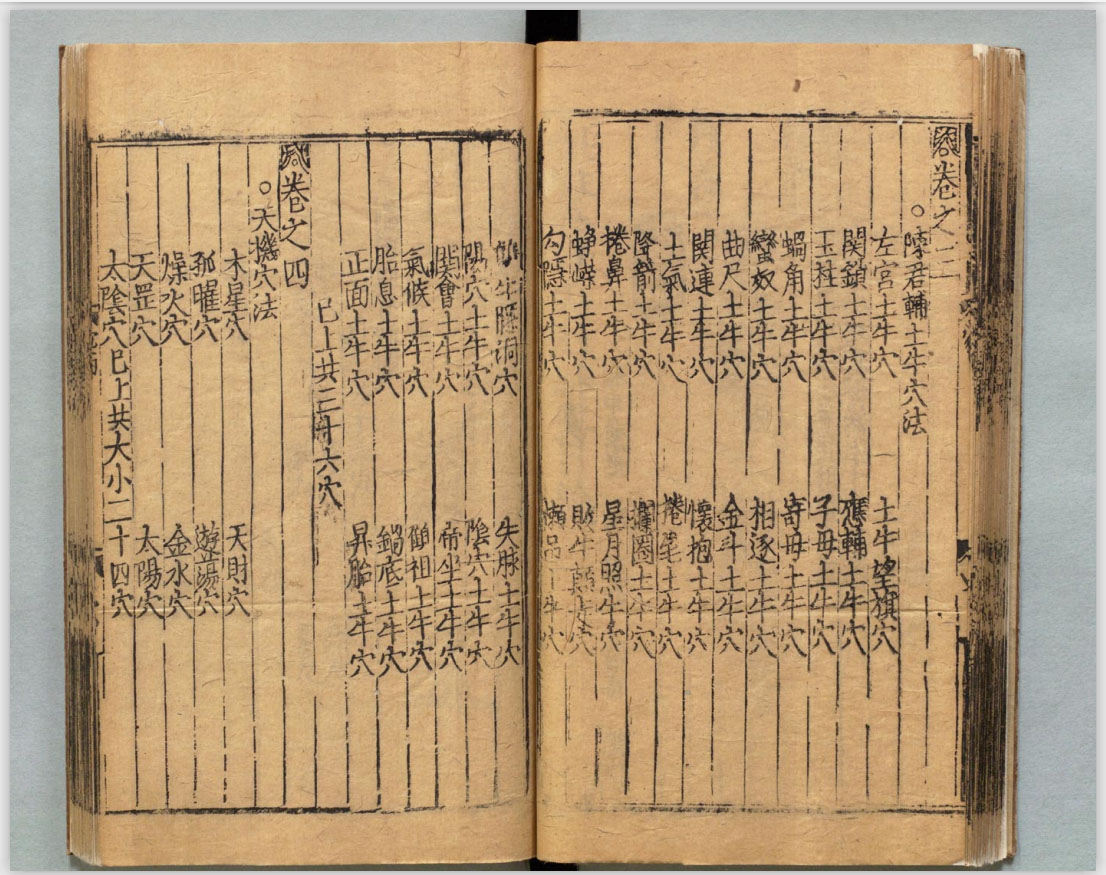 卷之三
○陳君輔土牛穴法
左宮土牛穴　土牛望旗穴
関鎖土牛穴　應輔土牛穴
玉柱土牛穴　子母土牛穴
蝸角土牛穴　寄母土牛穴
蠻奴土牛穴　相逐土牛穴
曲尺土牛穴　金斗土牛穴
関連土牛穴　懷抱土牛穴
土氣土牛穴　捲笔土牛穴
降箭土牛穴　圈土牛穴
捲鼻土牛穴　星月照牛穴
蜂嶸土牛穴　牛顛皮穴
勾隱土牛穴　牛穴
穴　失脉土牛穴
陽穴土牛穴　陰穴土牛穴
會土牛穴　帝坐土牛穴
氣候土牛穴　祖土牛穴
胎息土牛穴　鍋底土牛穴
正面土牛穴　昇胎土牛穴
已上共三十六穴
卷之四
○天機穴法
木星穴　天財穴
孤曜穴　遊漾穴
燥火穴　金水穴
天罡穴　太陽穴
太陰穴已上共大小二十四穴